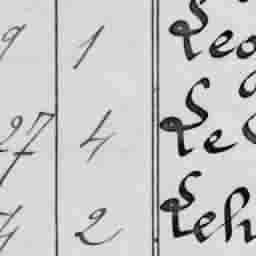 9 1 Leo
27 4 Le
4 2 Leh